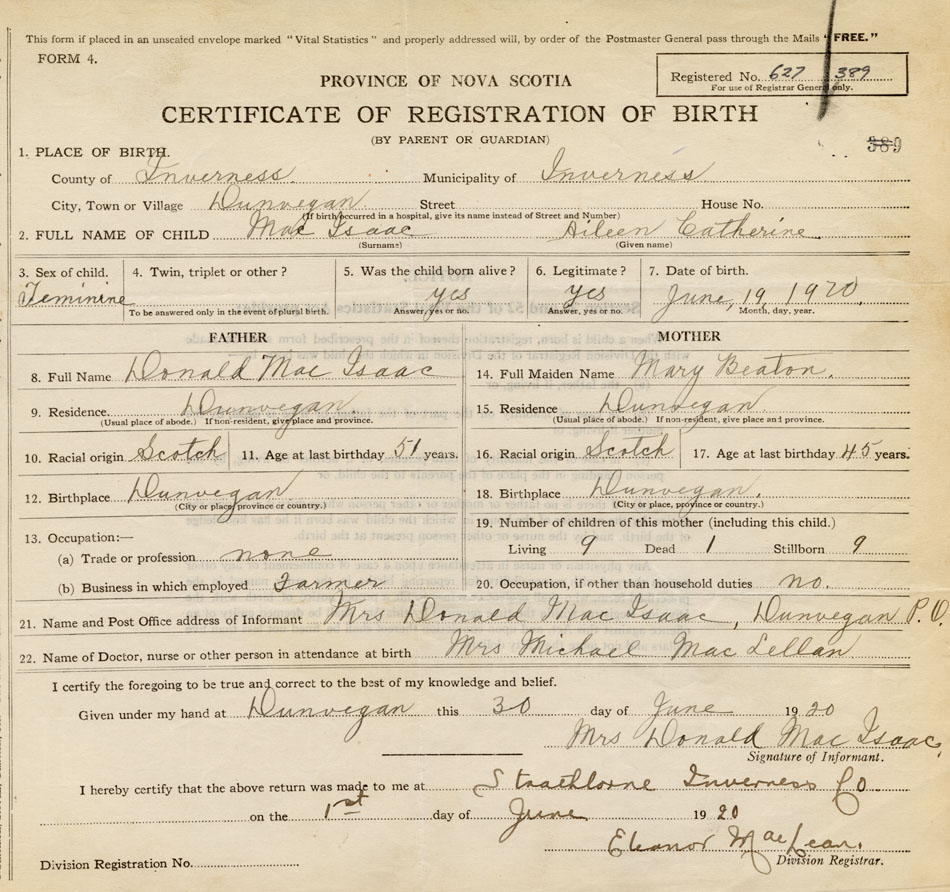 This form if placed in an unsealed envelope marked "Vital Statistics" and properly addressed will, by order of the Postmaster General pass through the Mails "FREE."
FORM 4.
Registered No. 627 389
For use of Registrar General only.
PROVINCE OF NOVA SCOTIA
CERTIFICATE OF REGISTRATION OF BIRTH
(BY PARENT OR GUARDIAN)
389
1. PLACE OF BIRTH.
County of Inverness Municipality of Inverness
City, Town or Village Dunvegan Street House No.
(If birth occurred in a hospital, give its name instead of Street and Number)
2. FULL NAME OF CHILD Mac Isaac Aileen Catherine
(Surname) (Given name)
3. Sex of child. 4. Twin, triplet or other? 5. Was the child born alive? 6. Legitimate? 7. Date of birth.
Feminine yes yes June, 19, 1920
To be answered only in the event of plural birth. Answer, yes or no. Answer, yes or no. Month, day, year.
FATHER MOTHER
8. Full Name Donald Mac Isaac 14. Full Maiden Name Mary Beaton.
9. Residence. Dunvegan. 15. Residence Dunvegan
(Usual place of abode.) If non-resident, give place and province. (Usual place of abode.) If non-resident, give place and province.
10. Racial origin Scotch 11. Age at last birthday 51 years. 16. Racial origin Scotch 17. Age at last birthday 45 years.
12. Birthplace Dunvegan 18. Birthplace Dunvegan.
(City or place, province or country.) (City or place, province or country.)
13. Occupation:— 19. Number of children of this mother (including this child.)
(a) Trade or profession none Living 9 Dead 1 Stillborn 9
(b) Business in which employed Farmer 20. Occupation, if other than household duties no.
21. Name and Post Office address of Informant Mrs Donald Mac Isaac, Dunvegan P.O.
22. Name of Doctor, nurse or other person in attendance at birth Mrs Michael Mac Lellan
I certify the foregoing to be true and correct to the best of my knowledge and belief.
Given under my hand at Dunvegan this 30 day of June 1920
Mrs Donald Mac Isaac,
Signature of Informant.
I hereby certify that the above return was made to me at Strathlorne Inverness Co
on the 1st day of June 1920
Eleanor MacLean.
Division Registrar.
Division Registration No.